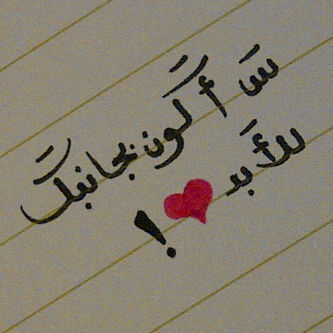 سأكون بجانبك
للأبد ❤!